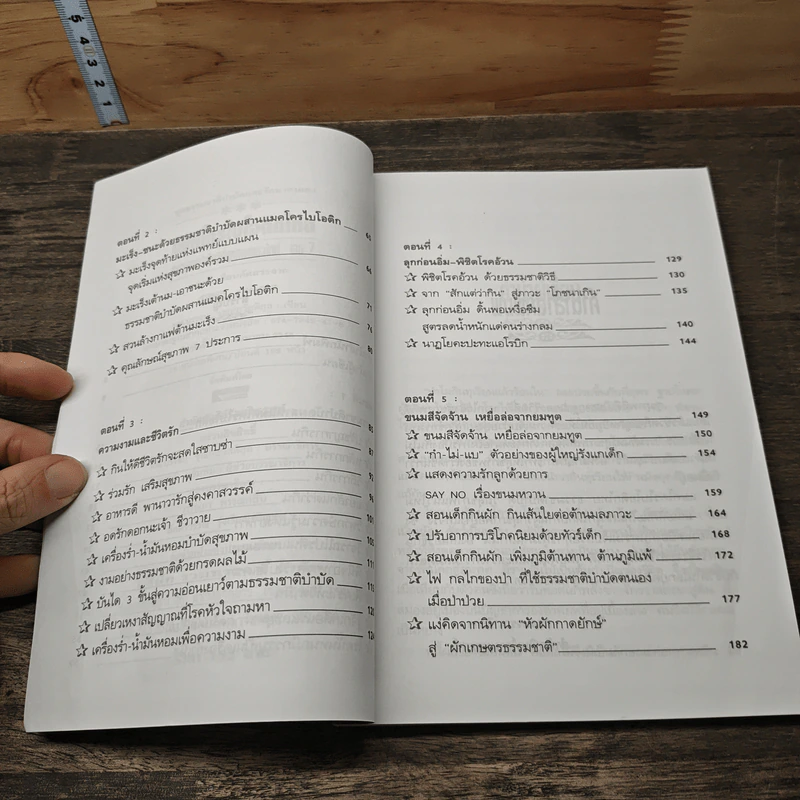 ตอนที่ 2 :
มะเร็ง-ชนะด้วยธรรมชาติบำบัดผสานแมคโครไบโอติก
☆ มะเร็งจุดท้ายแห่งแพทย์แบบแผน
จุดเริ่มแห่งสุขภาพองค์รวม
☆ มะเร็งเต้านม-เอาชนะด้วย
ธรรมชาติบำบัดผสานแมคโครไบโอติก 71
☆ สวนล้างกาแฟต้านมะเร็ง
☆ คุณลักษณ์สุขภาพ 7 ประการ
ตอนที่ 3 :
ความงามและชีวิตรัก
☆ กินให้ดีชีวิตรักจะสดใสซาบซ่า
☆ ร่วมรัก เสริมสุขภาพ
☆ อาหารดี พานาวารักสู่คงคาสวรรค์
☆ อดรักดอกนะเจ้า ชีวาวาย
☆ เครื่องร่ำ-น้ำมันหอมบำบัดสุขภาพ
☆ งามอย่างธรรมชาติด้วยกรดผลไม้
☆ บันได 3 ขั้นสู่ความอ่อนเยาว์ตามธรรมชาติบำบัด
☆ เปลี่ยวเหงาสัญญาณที่โรคหัวใจถามหา
☆ เครื่องร่ำ-น้ำมันหอมเพื่อความงาม
ตอนที่ 4 :
ลุกก่อนอิ่ม-พิชิตโรคอ้วน 129
☆ พิชิตโรคอ้วน ด้วยธรรมชาติวิธี 130
☆ จาก "สักแต่ว่ากิน" สู่ภาวะ "โภชนาเกิน" 135
☆ ลุกก่อนอิ่ม ดิ้นพอเหงื่อซึม
สูตรลดน้ำหนักแด่คนร่างกลม 140
☆ นาฏโยคะปะทะแอโรบิก 144
ตอนที่ 5 :
ขนมสีจัดจ้าน เหยื่อล่อจากยมทูต 149
☆ ขนมสีจัดจ้าน เหยื่อล่อจากยมทูต 150
☆ "กำ-ไม่-แบ" ตัวอย่างของผู้ใหญ่รังแกเด็ก 154
☆ แสดงความรักลูกด้วยการ
SAY NO เรื่องขนมหวาน 159
☆ สอนเด็กกินผัก กินเส้นใยต่อต้านมลภาวะ 164
☆ ปรับอาการบริโภคนิยมด้วยทัวร์เด็ก 168
☆ สอนเด็กกินผัก เพิ่มภูมิต้านทาน ต้านภูมิแพ้ 172
☆ ไฟ กลไกของป่า ที่ใช้ธรรมชาติบำบัดตนเอง
เมื่อป่าป่วย 177
☆ แง่คิดจากนิทาน "หัวผักกาดยักษ์"
สู่ "ผักเกษตรธรรมชาติ" 182